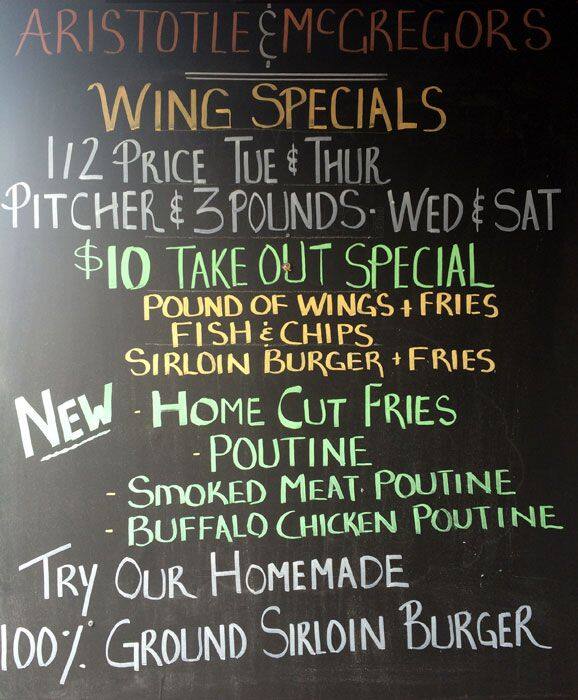 ARISTOTLE & McGREGORS
WING SPECIALS
1/2 PRICE TUE & THUR
PITCHER & 3 POUNDS - WED & SAT
$10 TAKE OUT SPECIAL
POUND OF WINGS + FRIES
FISH & CHIPS
SIRLOIN BURGER + FRIES
NEW - HOME CUT FRIES
- POUTINE
- SMOKED MEAT POUTINE
- BUFFALO CHICKEN POUTINE
TRY OUR HOMEMADE
100% GROUND SIRLOIN BURGER